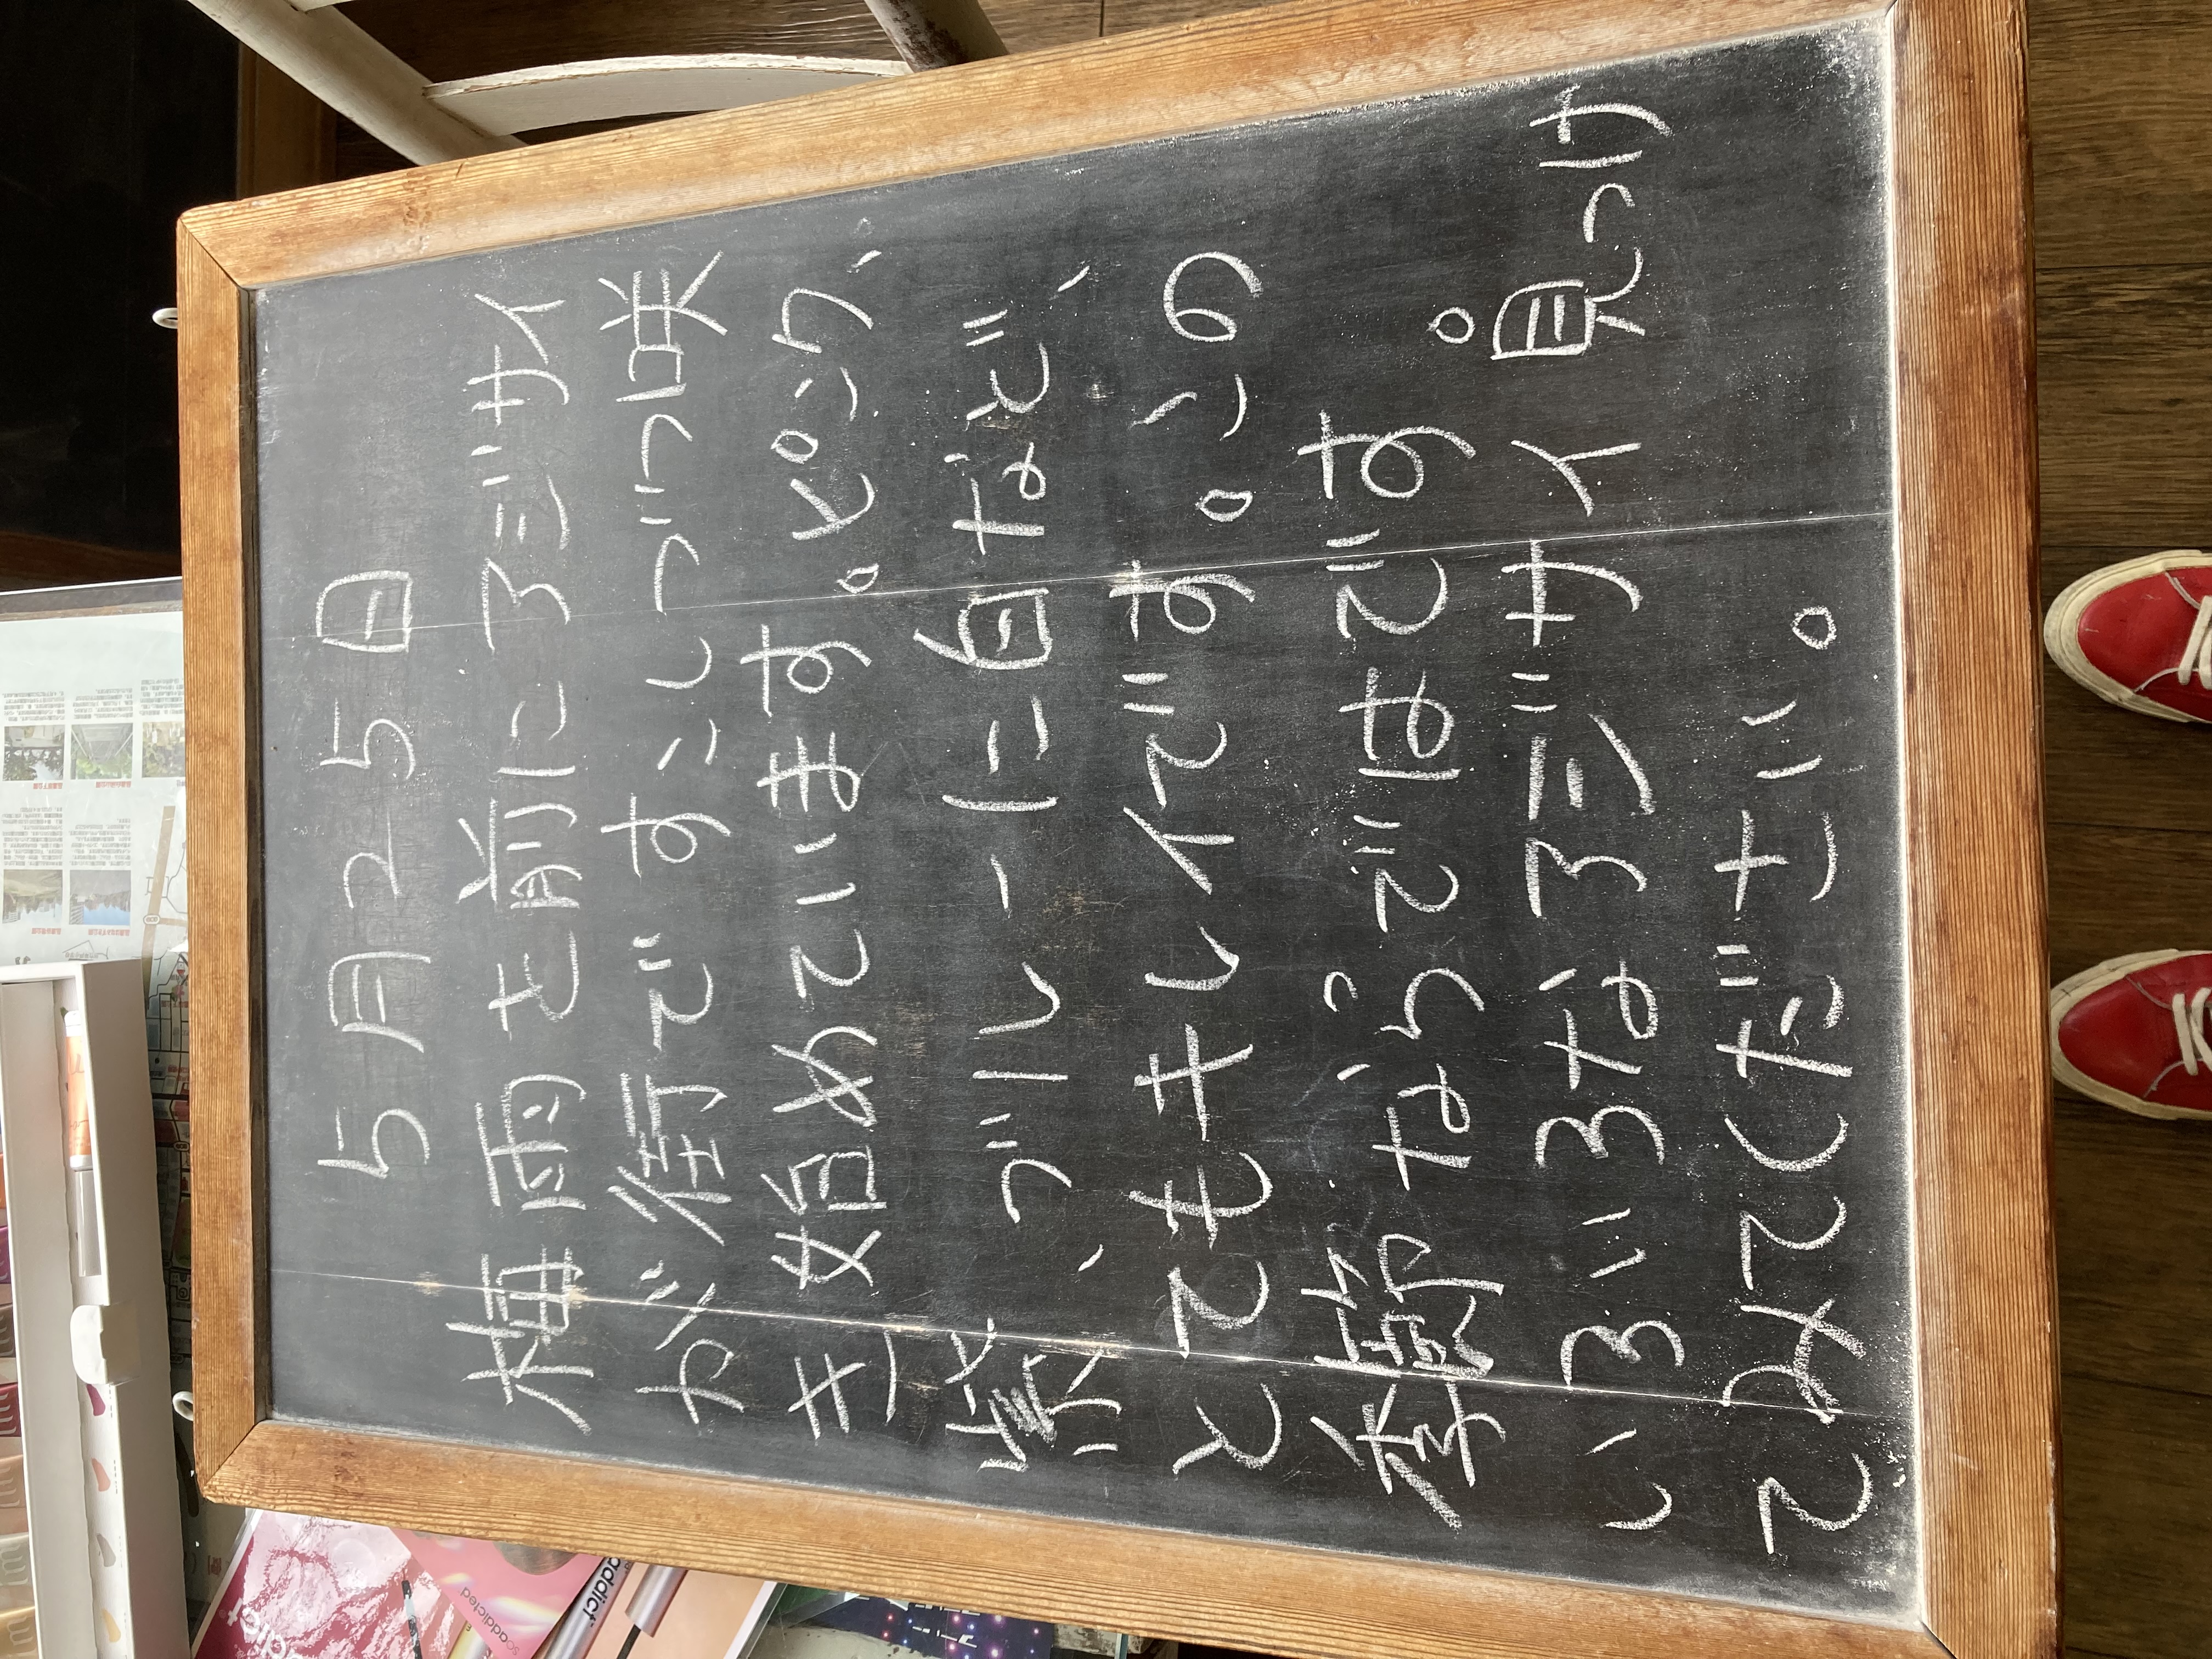 5月25日
梅雨を前にアジサイ
が街ですこしづつ咲
き始めています。ピンク、
紫、ブルーに白など、
とてもキレイです。この
季節ならではです。
いろいろなアジサイ見つけ
てみてください。
addict
scaddicted